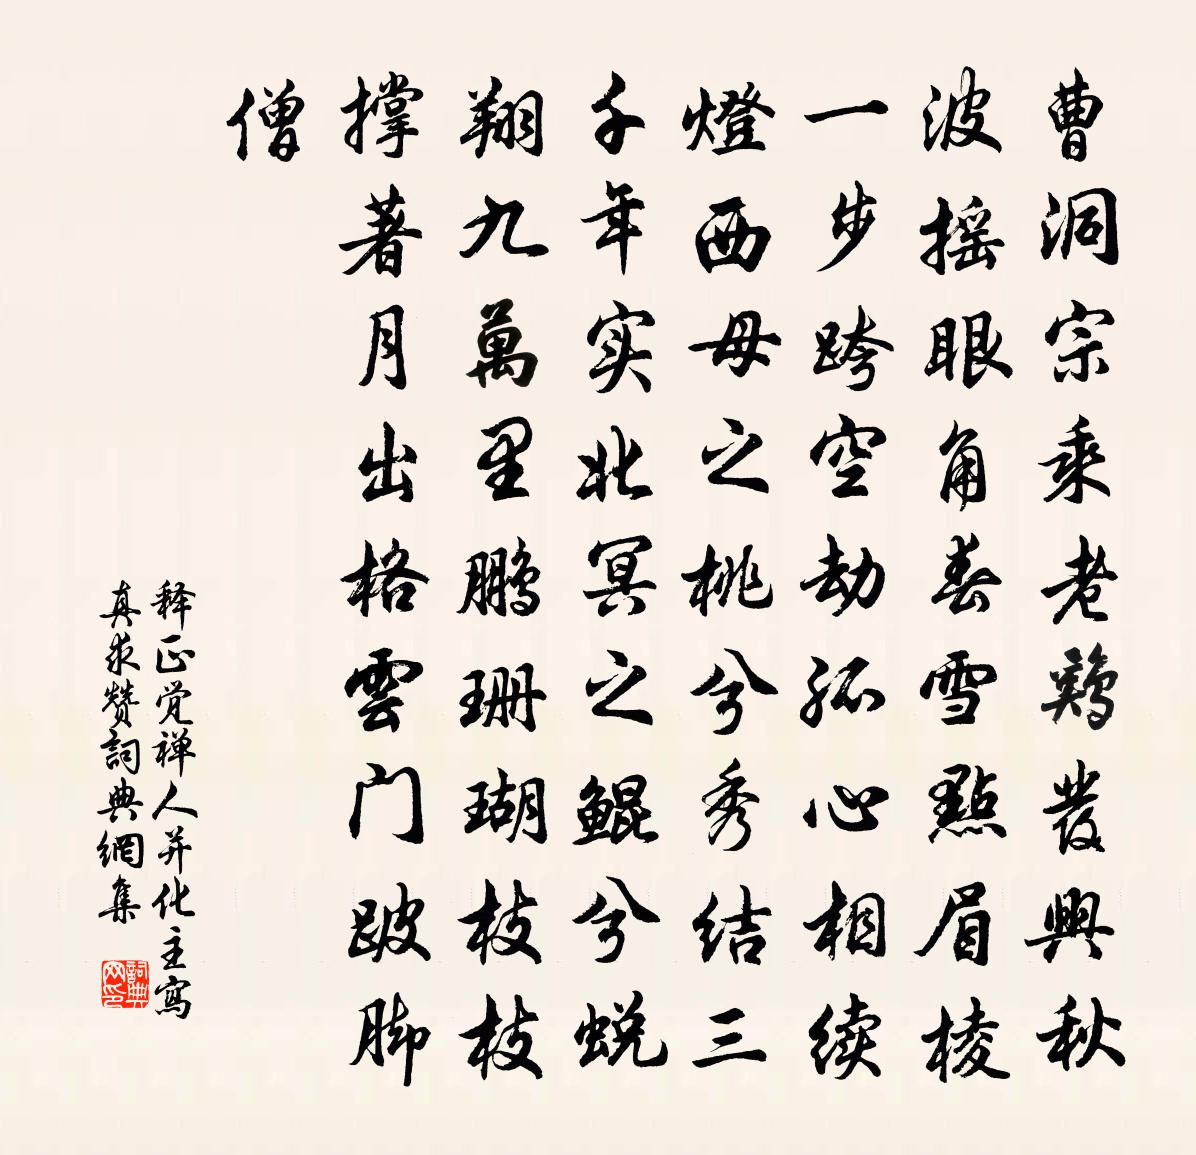 曹洞宗乘老鷄發興秋
波摇眼角春雪點眉棱
一步跨空劫孤心相续
燈西母之桃兮秀结三
千年实北冥之鲲兮蜕
翔九萬里鹏珊瑚枝枝
撑著月出格雲门跛脚
僧
释正觉禅人并化主寫
真求赞詞典網集
詞典
网